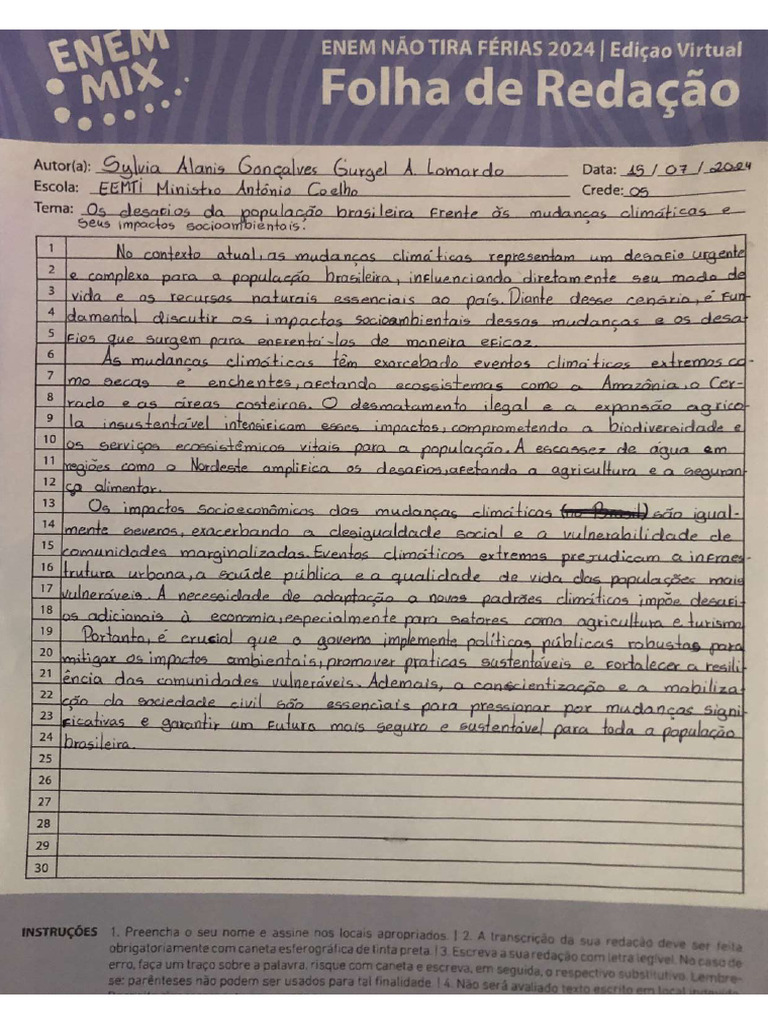 ENEM
MIX
ENEM NÃO TIRA FÉRIAS 2024 | Edição Virtual
Folha de Redação
Autor(a): Sylvia Alanis Gonçalves Gurgel A. Lomardo Data: 15/07/2024
Escola: EEMTI Ministro Antônio Coelho Crede: 05
Tema: Os desafios da população brasileira frente às mudanças climáticas e
seus impactos socioambientais.
1 No contexto atual, as mudanças climáticas representam um desafio urgente
2 e complexo para a população brasileira, influenciando diretamente seu modo de
3 vida e os recursos naturais essenciais ao país. Diante desse cenário, é fun-
4 damental discutir os impactos socioambientais dessas mudanças e os desa-
5 fios que surgem para enfrentá-los de maneira eficaz.
6 As mudanças climáticas têm exarcebado eventos climáticos extremos co-
7 mo secas e enchentes, afetando ecossistemas como a Amazônia, o Cer-
8 rado e as áreas costeiras. O desmatamento ilegal e a expansão agríco-
9 la insustentável intensificam esses impactos, comprometendo a biodiversidade e
10 os serviços ecossistêmicos vitais para a população. A escassez de água em
11 regiões como o Nordeste amplifica os desafios, afetando a agricultura e a seguran-
12 ça alimentar.
13 Os impactos socioeconômicos das mudanças climáticas são igual-
14 mente severos, exacerbando a desigualdade social e a vulnerabilidade de
15 comunidades marginalizadas. Eventos climáticos extremos prejudicam a infraes-
16 trutura urbana, a saúde pública e a qualidade de vida das populações mais
17 vulneráveis. A necessidade de adaptação a novos padrões climáticos impõe desafi-
18 os adicionais à economia, especialmente para setores como agricultura e turismo
19 Portanto, é crucial que o governo implemente políticas públicas robustas para
20 mitigar os impactos ambientais, promover praticas sustentáveis e fortalecer a resili-
21 ência das comunidades vulneráveis. Ademais, a conscientização e a mobiliza-
22 ção da sociedade civil são essenciais para pressionar por mudanças signi-
23 ficativas e garantir um futuro mais seguro e sustentável para toda a população
24 brasileira.
25
26
27
28
29
30
INSTRUÇÕES 1. Preencha o seu nome e assine nos locais apropriados. | 2. A transcrição da sua redação deve ser feita
obrigatoriamente com caneta esferográfica de tinta preta. | 3. Escreva a sua redação com letra legível. No caso de
erro, faça um traço sobre a palavra, risque com caneta e escreva, em seguida, o respectivo substitutivo. Lembre-
se: parênteses não podem ser usados para tal finalidade. | 4. Não será avaliado texto escrito em local